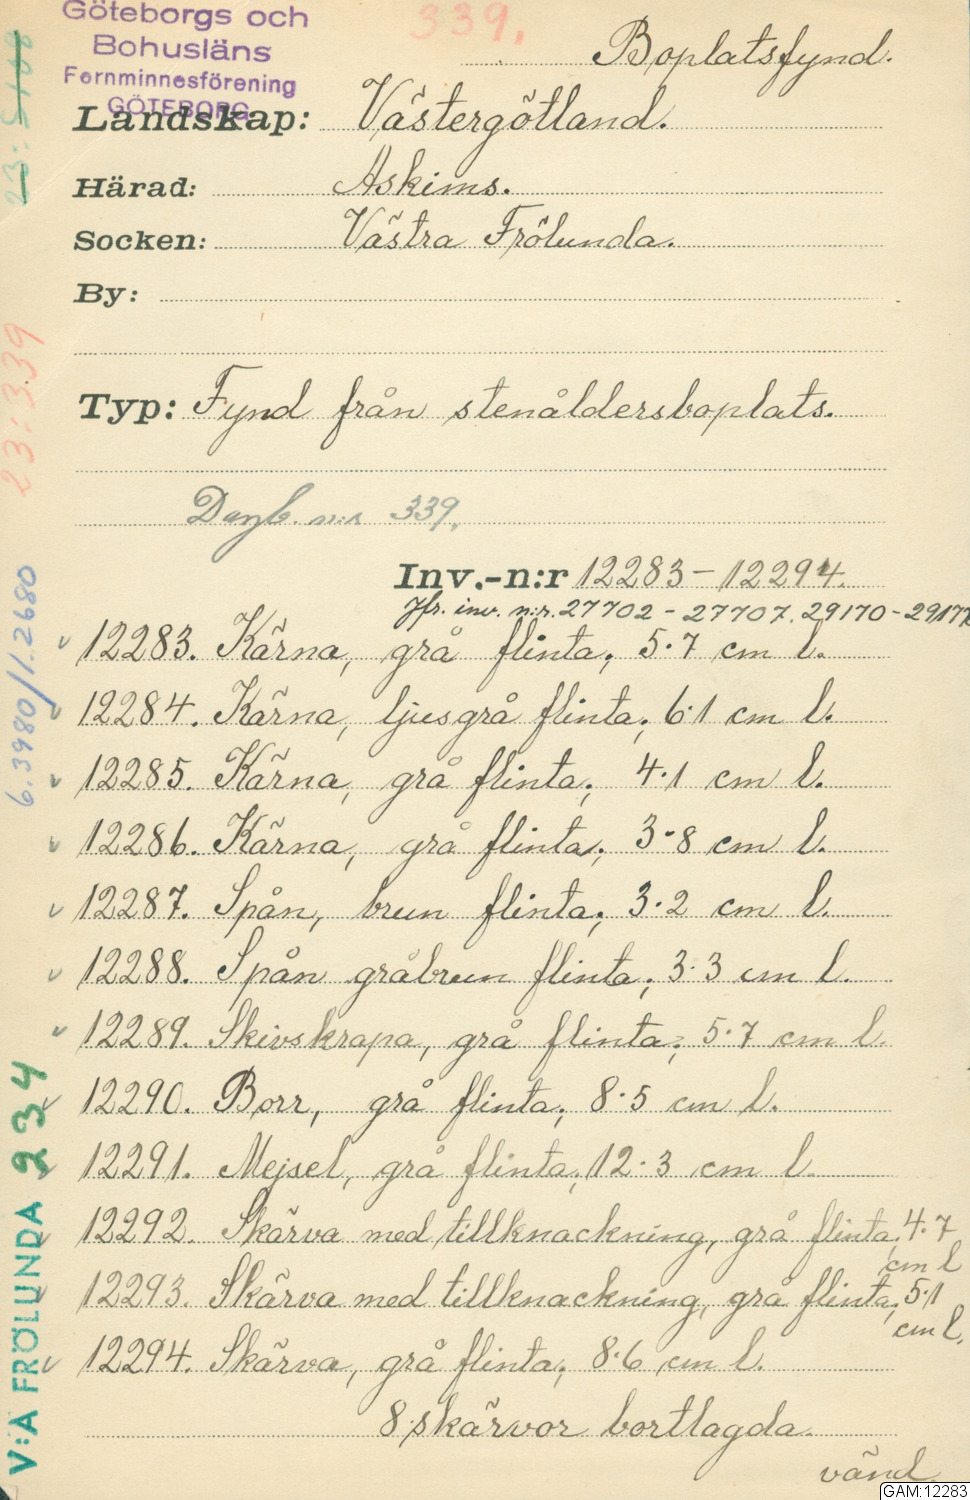 Göteborgs och
Bohusläns
Fornminnesförening
GÖTEBORG
339.
Boplatsfynd.
Landskap: Västergötland.
Härad: Askims.
Socken: Västra Frölunda.
By:
Typ: Fynd från stenåldersboplats.
Dagb. n:r 339.
Inv.-n:r 12283-12294.
Jfr. inv. n:r. 27702-27707. 29170-29177
12283. Kärna, grå flinta; 5.7 cm l.
12284. Kärna, ljusgrå flinta; 6.1 cm l.
12285. Kärna, grå flinta; 4.1 cm l.
12286. Kärna, grå flinta; 3.8 cm l.
12287. Spån, brun flinta; 3.2 cm l.
12288. Spån gråbrun flinta; 3.3 cm l.
12289. Skivskrapa, grå flinta; 5.7 cm l.
12290. Borr, grå flinta; 8.5 cm l.
12291. Mejsel, grå flinta; 12.3 cm l.
12292. Skärva med tillknackning, grå flinta; 4.7
cm l
12293. Skärva med tillknackning, grå flinta; 5.1
cm l.
12294. Skärva, grå flinta; 8.6 cm l.
8 skärvor bortlagda.
vänd.
23:
23:339
6.3980/1.2680
V:A FRÖLUNDA 234
GAM:12283